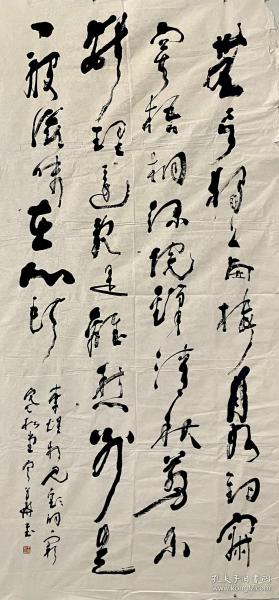 無言獨上西樓月如鈎寂
寞梧桐深院鎖清秋剪不
斷理還亂是離愁別是
一般滋味在心頭
李煜相見歡詞